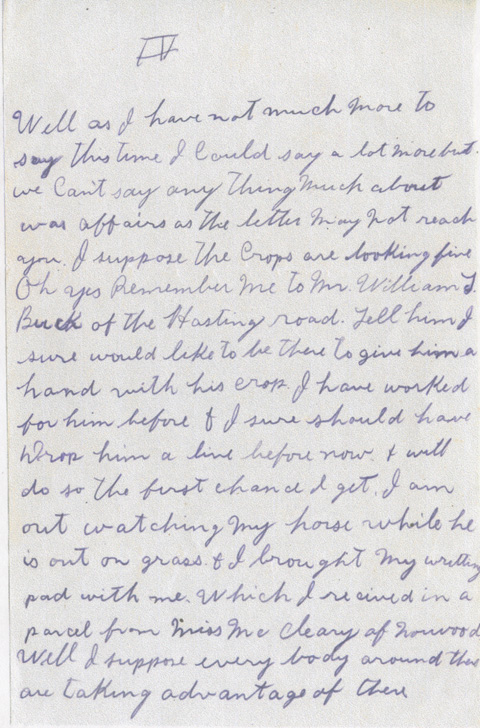 IV
Well as I have not much more to
say this time I Could say a lot more but
we Cant say any thing much about
war affairs as the letter may not reach
you. I suppose the Crops are looking fine
Oh yes Remember Me to Mr. William J.
Buck of the Hasting road. Tell him I
sure would like to be there to give him a
hand with his crop. I have worked
for him before. & I sure should have
Drop him a line before now. & will
do so the first chance I get. I am
out watching My horse while he
is out on grass. & I brought My writting
pad with me. Which I recived in a
parcel from Miss Mc Cleary of Norwood
Well I suppose every body around there
are taking advantage of there